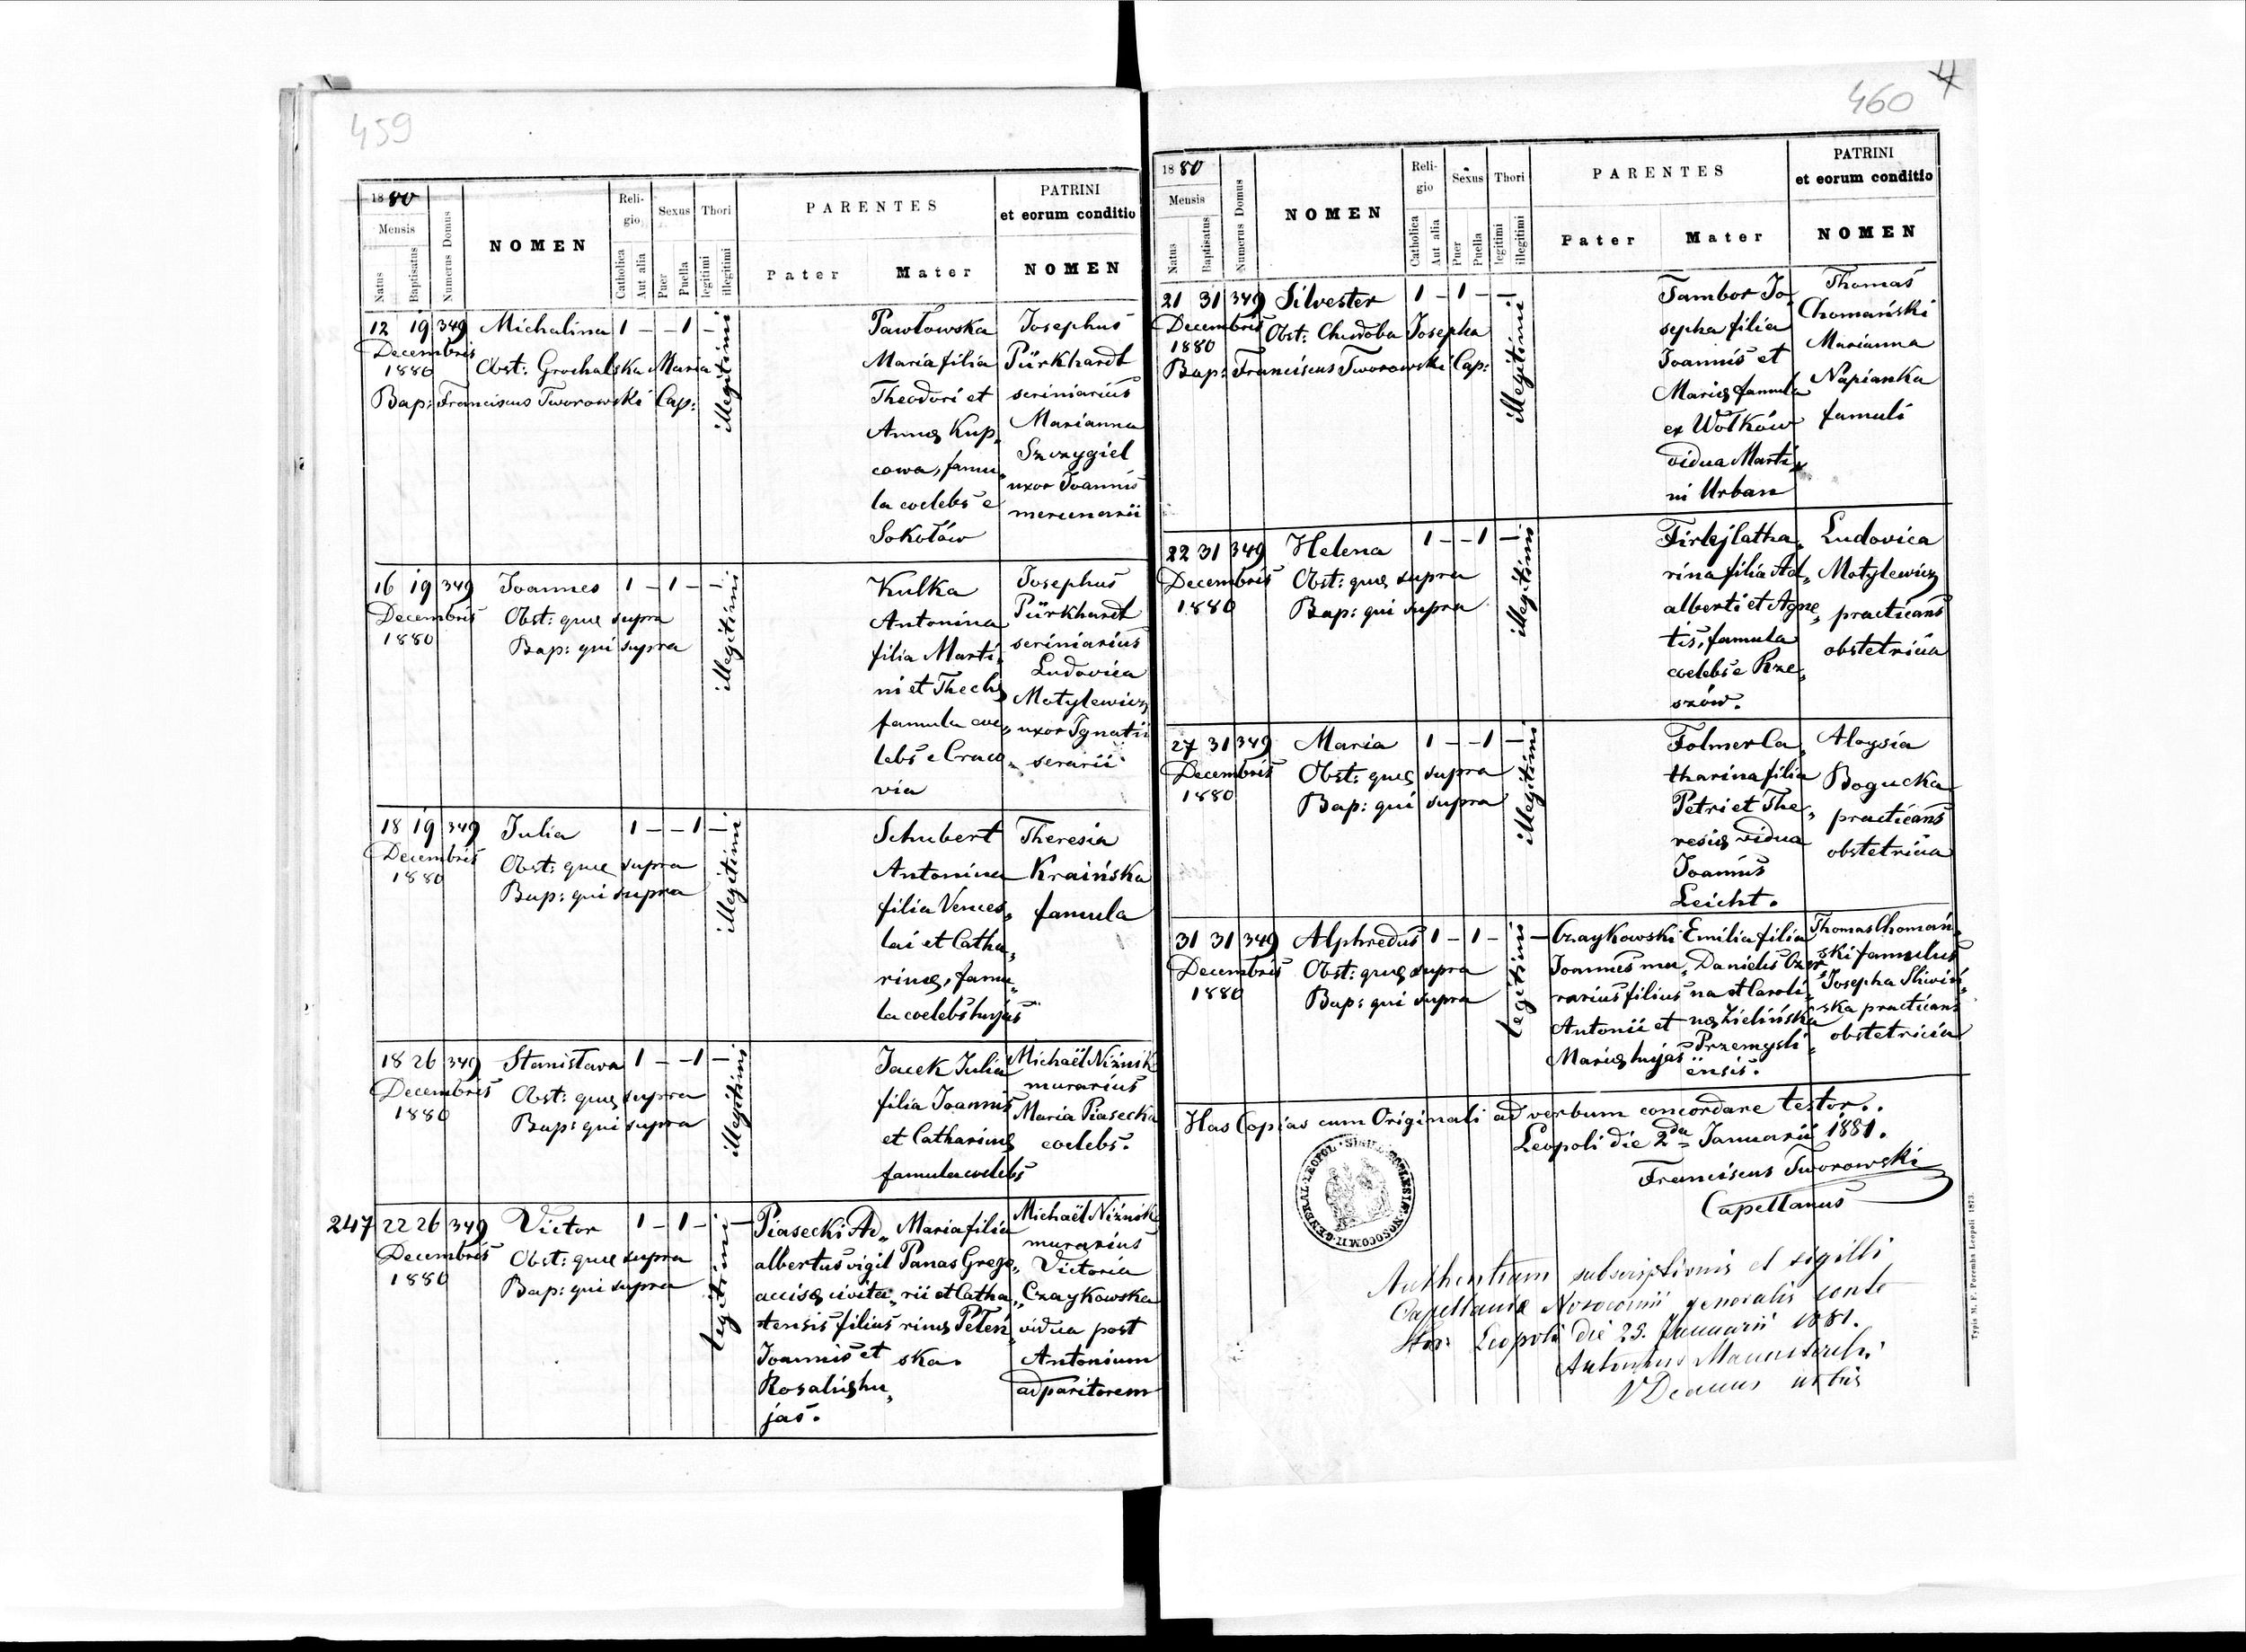 459
1880
Mensis
Natus
Baptisatus
Numerus Domus
NOMEN
Reli-
gio
Catholica
Aut alia
Sexus
Puer
Puella
Thori
legitimi
illegitimi
PARENTES
Pater
Mater
PATRINI
et eorum conditio
NOMEN
12 19 349 Michalina 1 – – 1 –
Decembris
1880
Obst: Grochalska Maria
Bap: Franciscus Tworowski Cap:
illegitimi
Pawłowska
Maria filia
Theodori et
Annę Kup„
cowa, famu„
la coelebs e
Sokołów
Josephus
Pürkhardt
scriniarius
Marianna
Szczygieł
uxor Joannis
mercenarii
16 19 349 Joannes 1 – 1 – –1
Decembris
1880
Obst: quę supra
Bap: qui supra
illegitimi
Kulka
Antonina
filia Marti„
ni et Theclę
famula coe„
lebs e Craco„
via
Josephus
Pürkhardt
scriniarius
Ludovica
Motylewicz
uxor Ignatii
serarii
18 19 349 Julia 1 – – 1 –1
Decembris
1880
Obst: quę supra
Bap: qui supra
illegitimi
Schubert
Antonina
filia Vences„
lai et Catha„
rinę, famu„
la coelebs hujas
Theresia
Kraińska
famula
18 26 349 Stanisława 1 – –1 –1
Decembris
1880
Obst: quę supra
Bap: qui supra
illegitimi
Jacek Julia
filia Joannis
et Catharinę
famula coelebs
Michaël Niźnik
murarius
Maria Piasecka
coelebs.
247 22 26 349 Victor 1 – 1 – 1 –
Decembris
1880
Obst: quę supra
Bap: qui supra
legitimi
Piasecki Ad„
albertus vigil
accisę civita„
tensis filius
Joannis et
Rosalię hu„
jas.
Maria filia
Panas Grego„
rii et Catha„
rinę Peteń„
ska.
Michaël Niźnik
murarius
Victoria
Czaykowska
vidua post
Antonium
adparitorem
460
1880
Mensis
Natus
Baptisatus
Numerus Domus
NOMEN
Reli-
gio
Catholica
Aut alia
Sexus
Puer
Puella
Thori
legitimi
illegitimi
PARENTES
Pater
Mater
PATRINI
et eorum conditio
NOMEN
21 31 349 Silvester 1 – 1 – –1
Decembris
1880
Obst: Chudoba Josepha
Bap: Franciscus Tworowski Cap:
illegitimi
Tambor Jo„
sepha filia
Joannis et
Marię famula
ex Wołków
vidua Marti„
ni Urban
Thomas
Chomański
Marianna
Napianka
famuli
22 31 349 Helena 1 – –1 –1
Decembris
1880
Obst: quę supra
Bap: qui supra
illegitimi
Firlej Catha„
rina filia Ad„
alberti et Agne„
tis, famula
coelebs e Rze„
szów.
Ludovica
Motylewicz
practicans
obstetricia
27 31 349 Maria 1 – –1 –1
Decembris
1880
Obst: quę supra
Bap: qui supra
illegitimi
Folmer Ca„
tharina filia
Petri et The„
resię vidua
Joannis
Leicht.
Aloysia
Bogucka
practicans
obstetricia
31 31 349 Alphredus 1 – 1 – 1 –
Decembris
1880
Obst: quę supra
Bap: qui supra
legitimi
Czaykowski
Joannes mu„
rarius filius
Antonii et
Marię hujas
Emilia filia
Danielis Czer„
na et Caroli„
nę Zielińska
Przemysli„
ensis.
Thomas Chomań„
ski famulus
Josepha Śliwiń„
ska practicans
obstetricia
Has Copias cum Originali ad verbum concordare testor.
Leopoli die 2da Januarii 1881.
Franciscus Tworowski
Capellanus
Authentiam subscriptionis et sigilli
Capellaniæ Nosocomii generalis conte
stor. Leopoli die 23. Januarii 1881.
Antonius
VDecanus urbis
Typis M. F. Poremba Leopoli 1873.